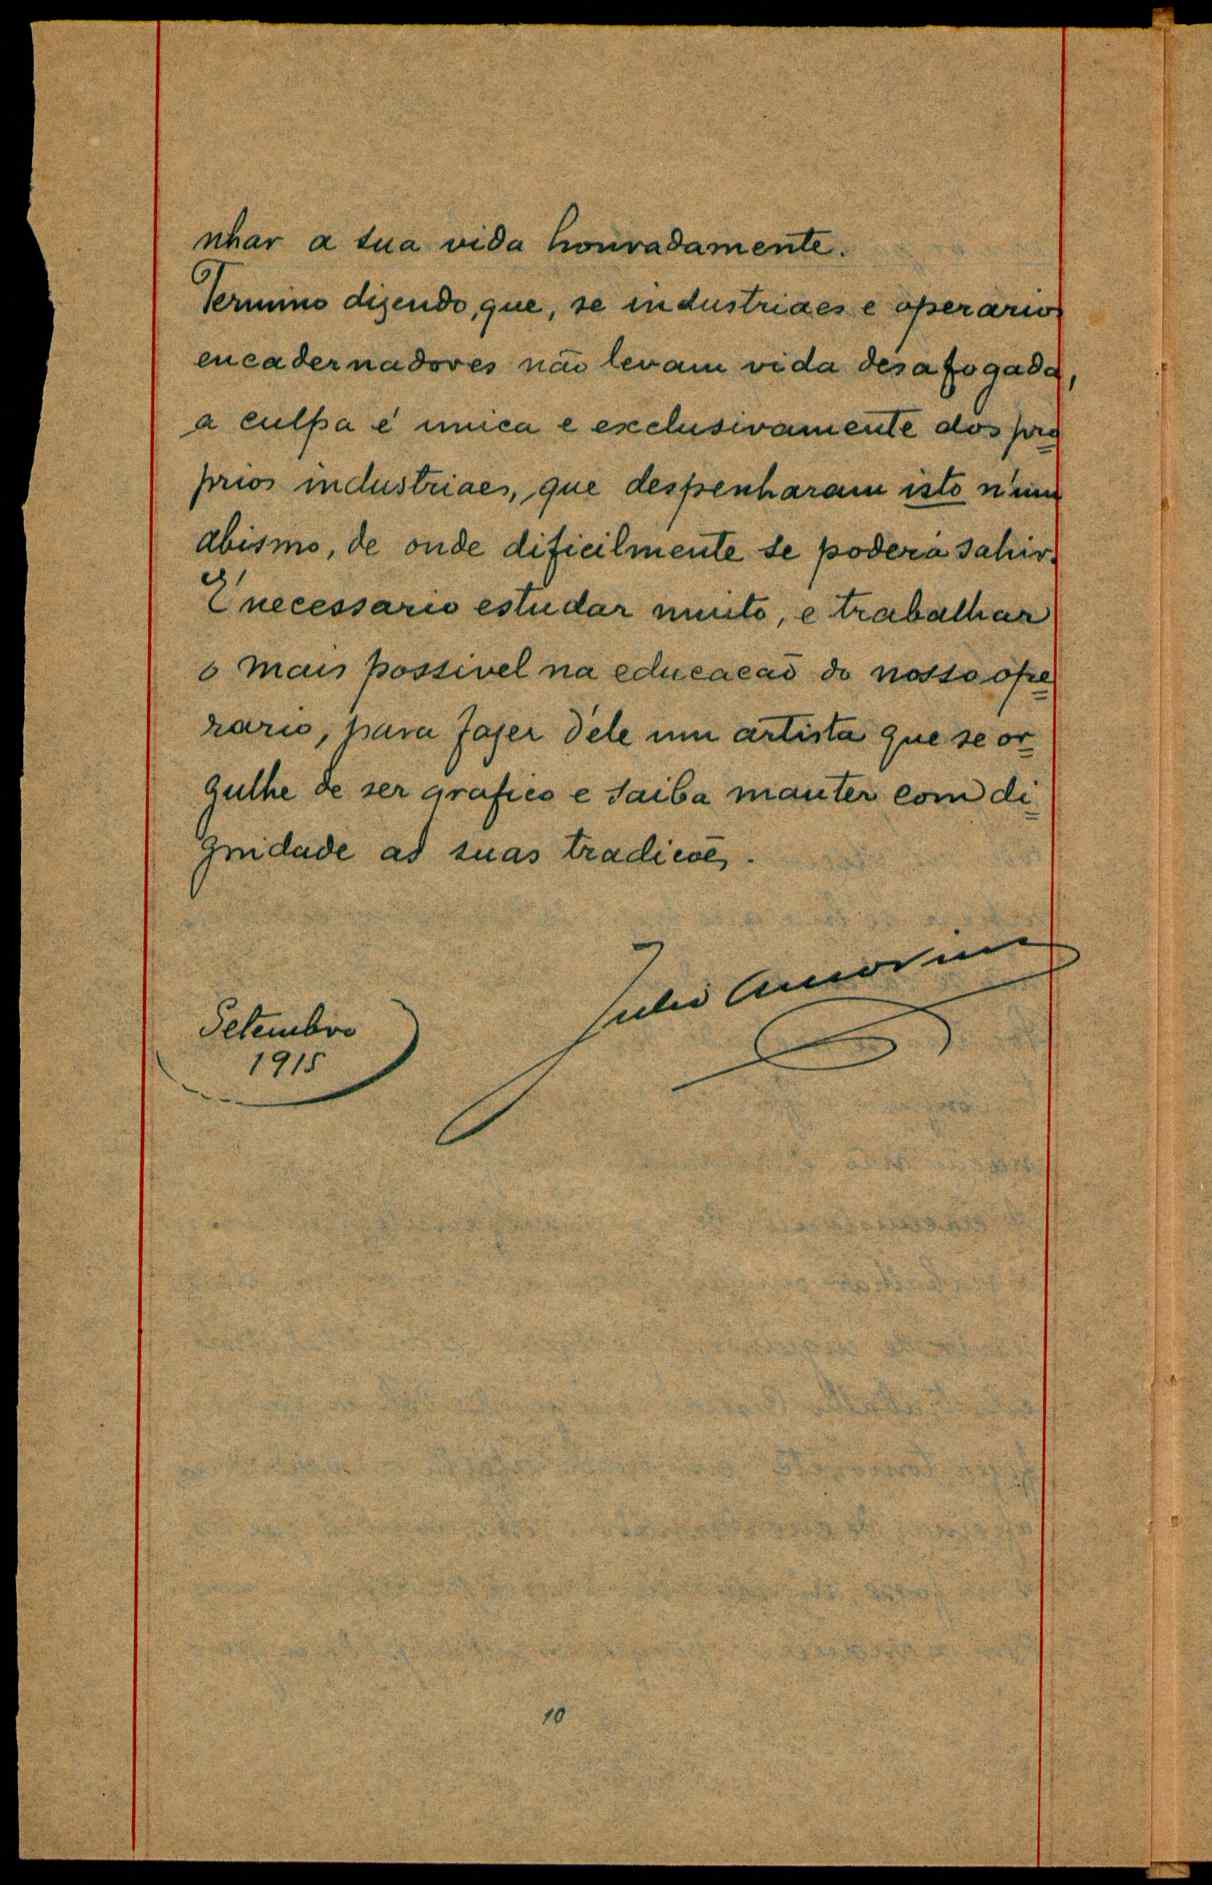 nhar a sua vida honradamente.
Termino dizendo, que, se industriaes e operarios
encadernadores não levam vida desafogada,
a culpa é unica e exclusivamente dos pro=
prios industriaes, que despenharam isto n'um
abismo, de onde dificilmente se poderá sahir.
É necessario estudar muito, e trabalhar
o mais possivel na educacão do nosso ope=
rario, para fazer d'ele um artista que se or=
gulhe de ser grafico e saiba manter com di=
gnidade as suas tradicões.
Julio Amorim
Setembro
1915
10